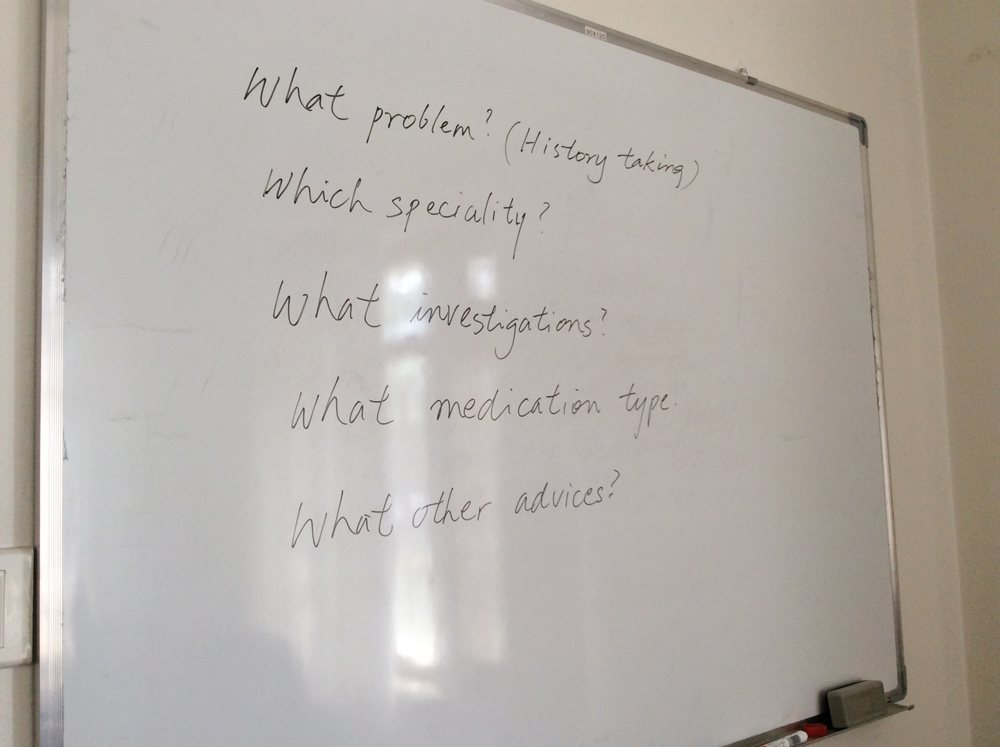 What problem? (History taking)
Which speciality?
What investigations?
What medication type.
What other advices?